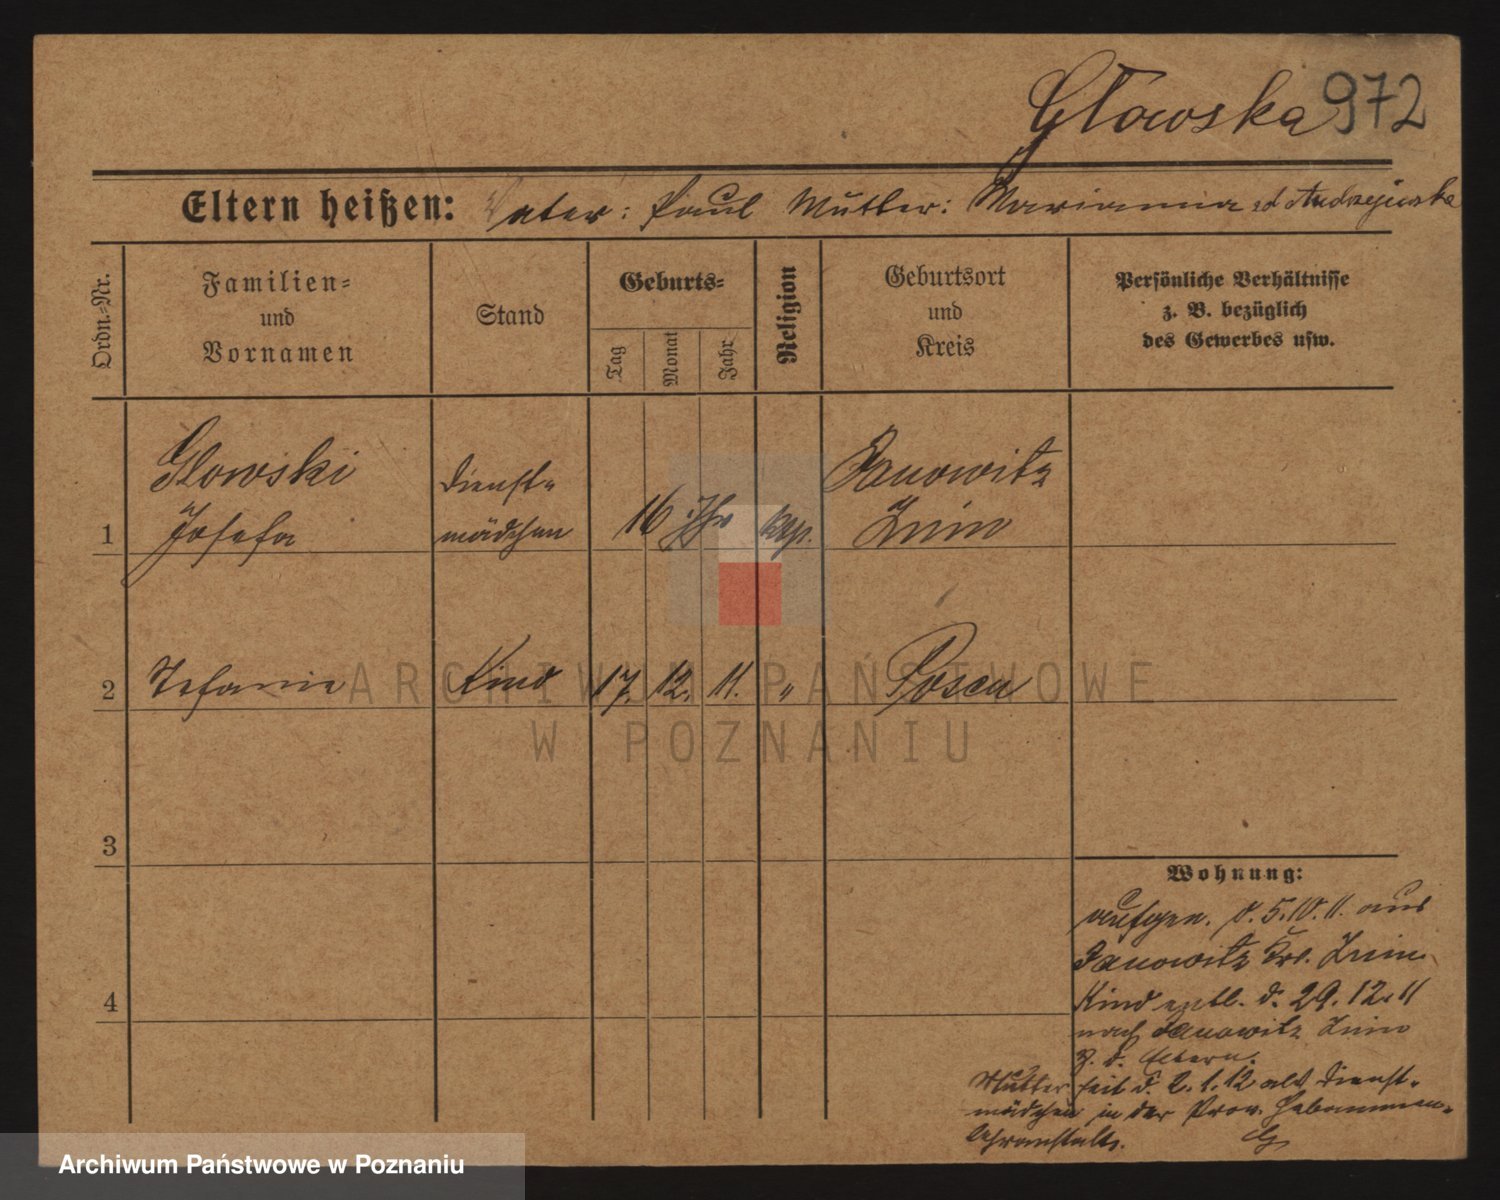 Głowska 972
Eltern heißen: Vater: Paul Mutter: Marianna
Ordn.-Nr.
Familien-
und
Vornamen
Stand
Geburts-
Tag
Monat
Jahr
Religion
Geburtsort
und
Kreis
Persönliche Verhältnisse
z. B. bezüglich
des Gewerbes usw.
1
Glowski
Josefa
Dienst-
mädchen
16 Jhr
Janowitz
Znin
2
Stefanie
Kind
17. 12. 11. "
Posen
3
4
Wohnung:
aufgen. d. 5.10.11. aus
Janowitz Krs. Znin
Kind entl. d. 29.12.11
nach Janowitz Znin
z. d. Eltern.
Mutter seit d. 2.1.12 als Dienst-
mädchen in der Prov. Hebammen-
lehranstalt.
ARCHIWUM PAŃSTWOWE
W POZNANIU
Archiwum Państwowe w Poznaniu